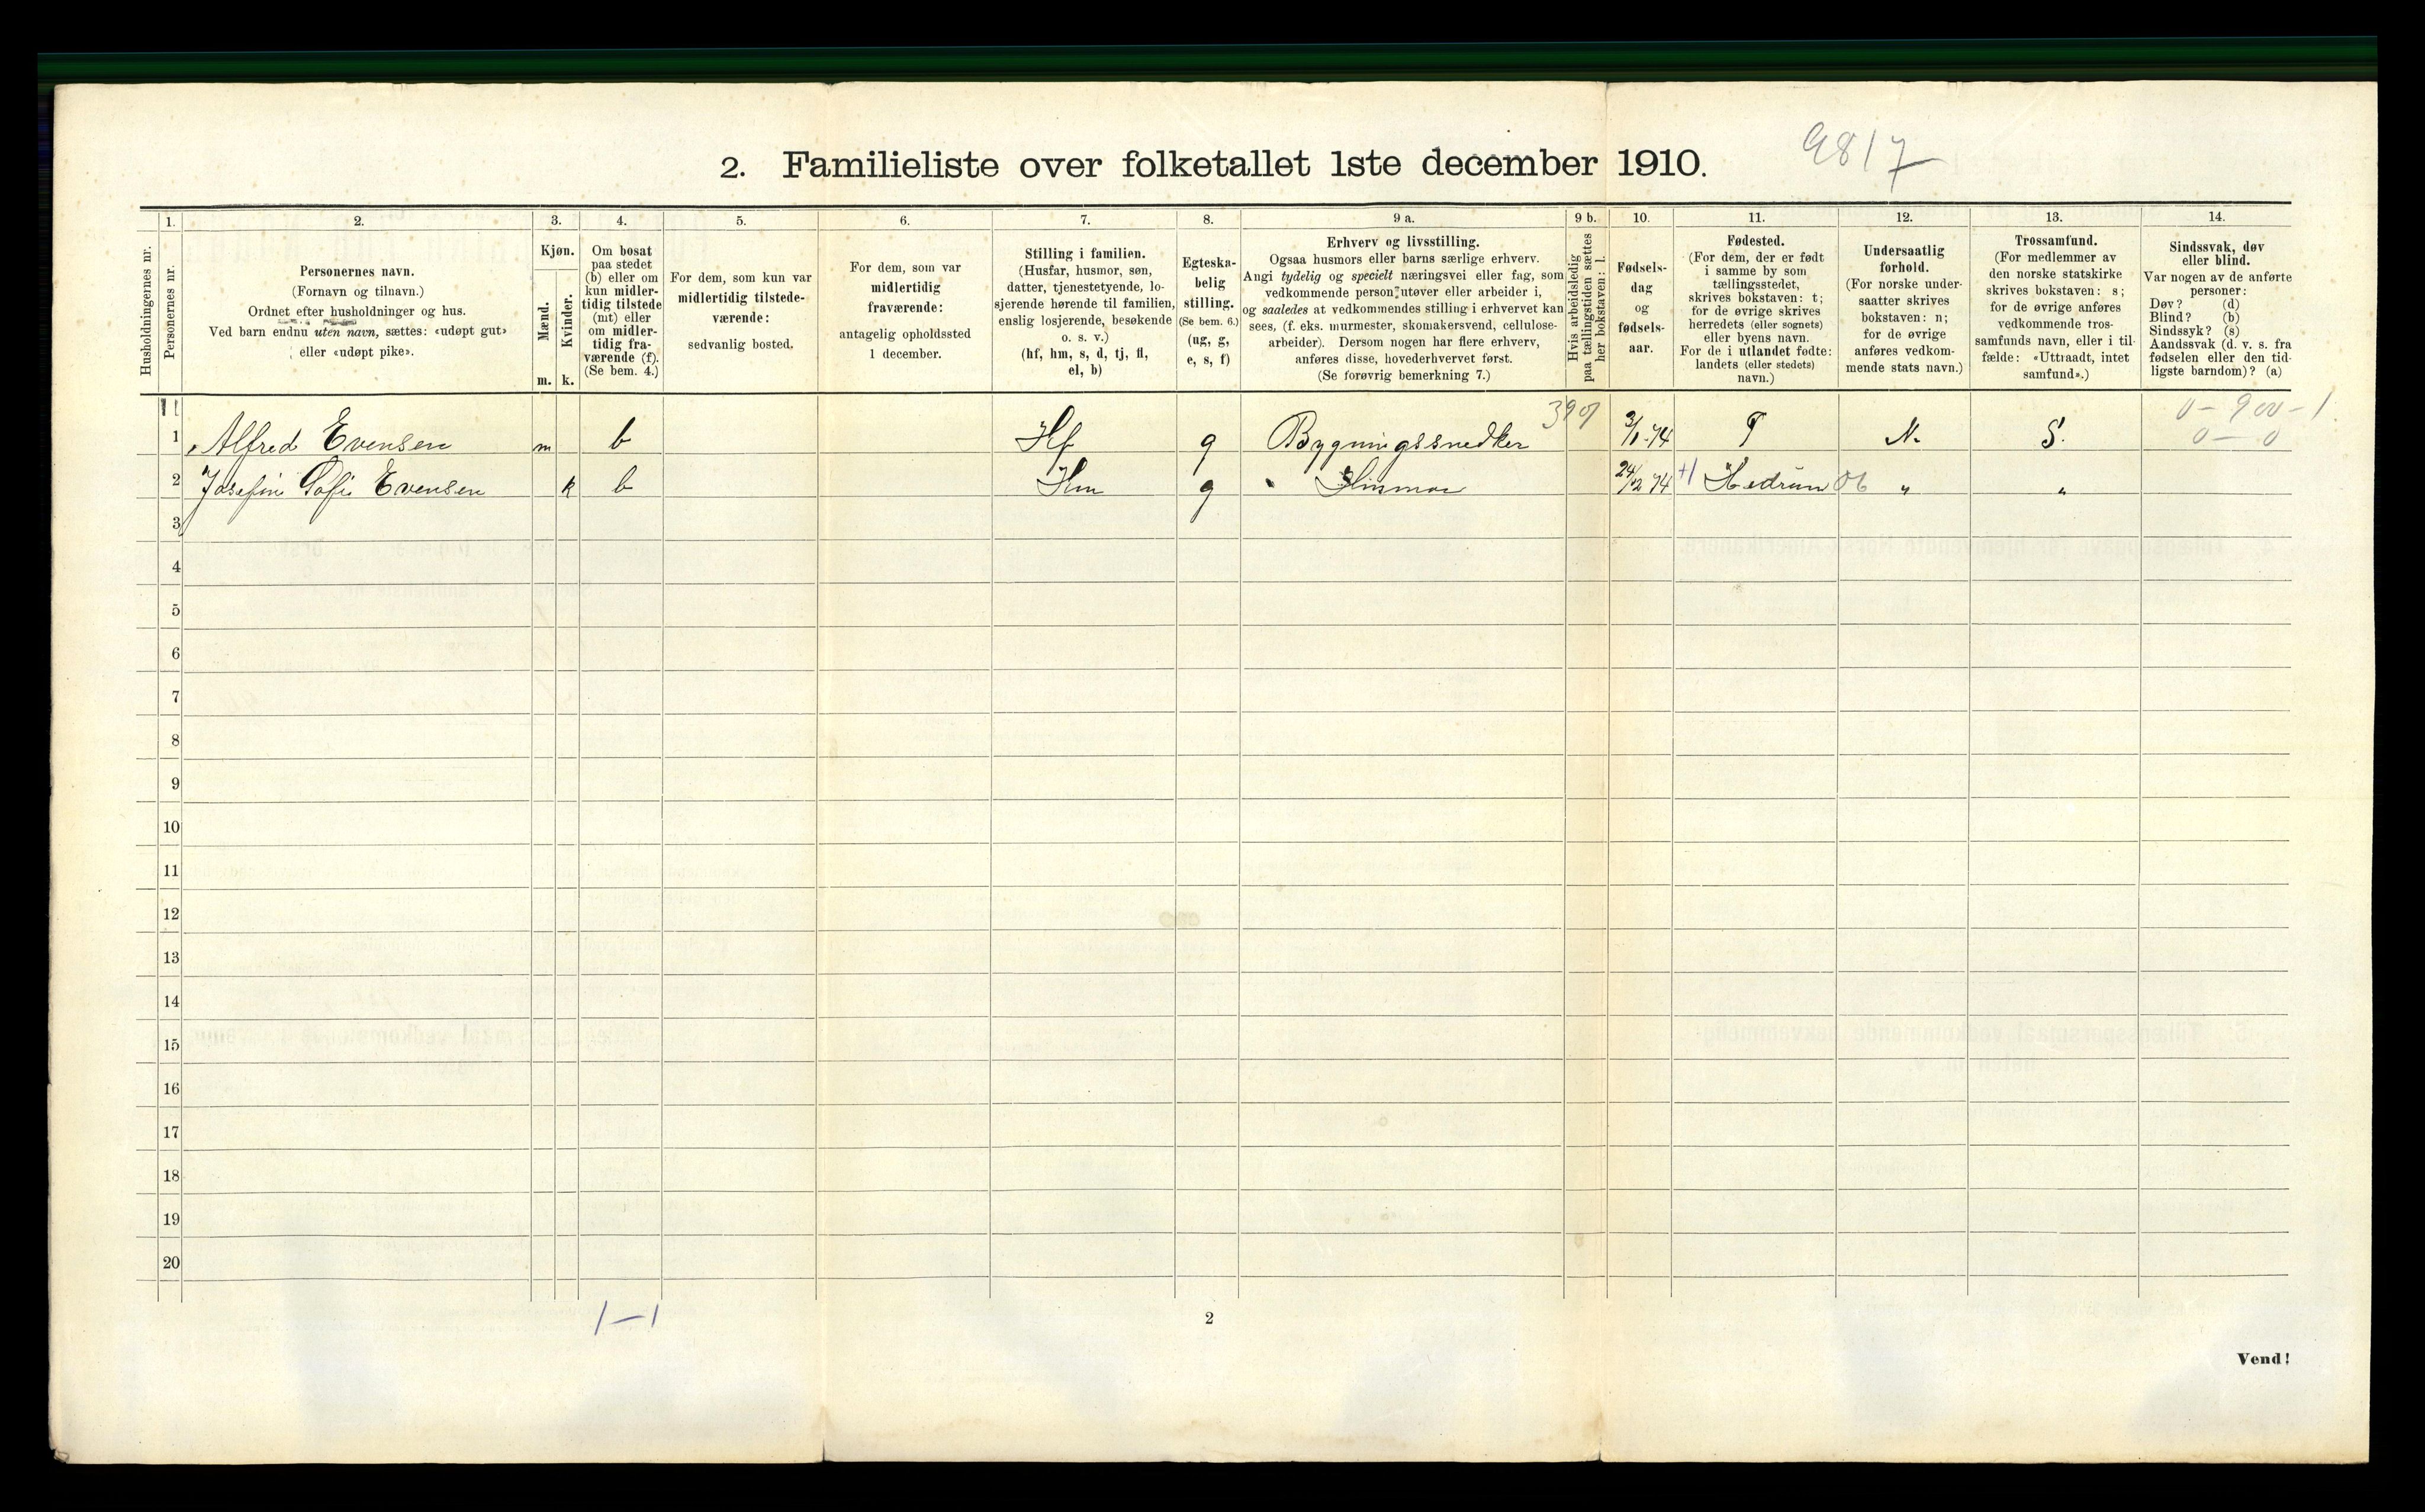 9817
2. Familieliste over folketallet 1ste december 1910.
Husholdningernes nr.
1. Personernes nr.
2. Personernes navn.
(Fornavn og tilnavn.)
Ordnet efter husholdninger og hus.
Ved barn endnu uten navn, sættes: «udøpt gut»
eller «udøpt pike».
3. Kjøn.
Mænd. m.
Kvinder. k.
4. Om bosat
paa stedet
(b) eller om
kun midler-
tidig tilstede
(mt) eller
om midler-
tidig fra-
værende (f).
(Se bem. 4.)
5. For dem, som kun var
midlertidig tilstede-
værende:
sedvanlig bosted.
6. For dem, som var
midlertidig
fraværende:
antagelig opholdssted
1 december.
7. Stilling i familien.
(Husfar, husmor, søn,
datter, tjenestetyende, lo-
sjerende hørende til familien,
enslig losjerende, besøkende
o. s. v.)
(hf, hm, s, d, tj, fl,
el, b)
8. Egteska-
belig
stilling.
(Se bem. 6.)
(ug, g,
e, s, f)
9 a. Erhverv og livsstilling.
Ogsaa husmors eller barns særlige erhverv.
Angi tydelig og specielt næringsvei eller fag, som
vedkommende person utøver eller arbeider i,
og saaledes at vedkommendes stilling i erhvervet kan
sees, (f. eks. murmester, skomakersvend, cellulose-
arbeider). Dersom nogen har flere erhverv,
anføres disse, hovederhvervet først.
(Se forøvrig bemerkning 7.)
9 b. Hvis arbeidsledig
paa tællingstiden sættes
her bokstaven: l.
10. Fødsels-
dag
og
fødsels-
aar.
11. Fødested.
(For dem, der er født
i samme by som
tællingsstedet,
skrives bokstaven: t;
for de øvrige skrives
herredets (eller sognets)
eller byens navn.
For de i utlandet fødte:
landets (eller stedets)
navn.)
12. Undersaatlig
forhold.
(For norske under-
saatter skrives
bokstaven: n;
for de øvrige
anføres vedkom-
mende stats navn.)
13. Trossamfund.
(For medlemmer av
den norske statskirke
skrives bokstaven: s;
for de øvrige anføres
vedkommende tros-
samfunds navn, eller i til-
fælde: «Uttraadt, intet
samfund».)
14. Sindssvak, døv
eller blind.
Var nogen av de anførte
personer:
Døv? (d)
Blind? (b)
Sindssyk? (s)
Aandssvak (d. v. s. fra
fødselen eller den tid-
ligste barndom)? (a)
0 - 900 - 1
1 Alfred Evensen m b Hf g Bygningssnedker T N. S. 0 — 0
2 Josefin Sofie Evensen k b Hm g Husmor 24/12 74 Hedrum 06 " "
3
4
5
6
7
8
9
10
11
12
13
14
15
16
17
18
19
20
1—1
2
Vend!